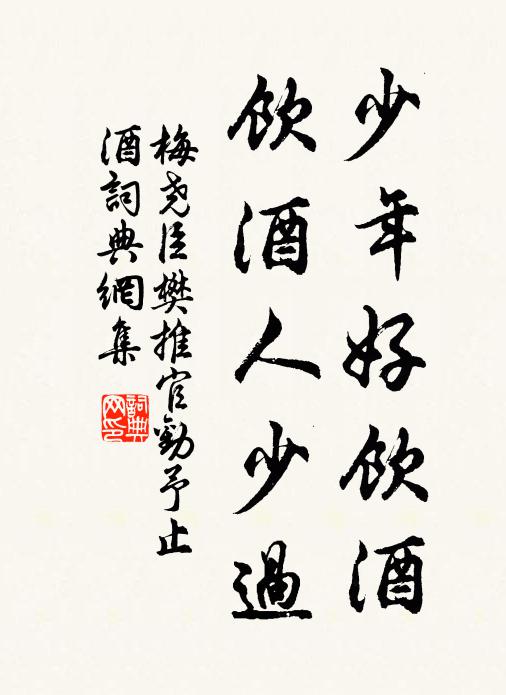 少年好飲酒
飲酒人少過
梅堯臣樊推官勸予止
酒詞典網集
詞典
网印